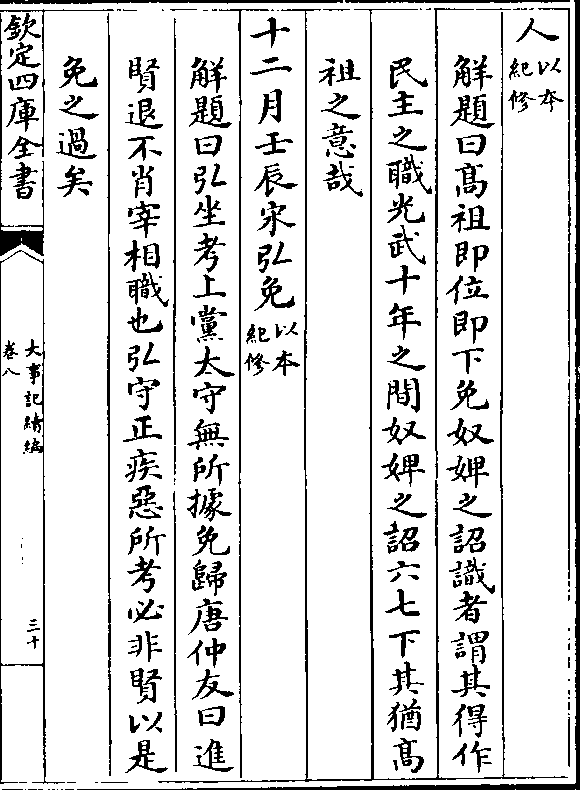 人以本紀修
解題曰髙祖即位即下免奴婢之詔識者謂其得作
民主之職光武十年之間奴婢之詔六七下其猶髙
祖之意哉
十二月壬辰宋弘免以本紀修
解題曰弘坐考上黨太守無所據免歸唐仲友曰進
賢退不肖宰相職也弘守正疾惡所考必非賢以是
免之過矣
欽定四庫全書
大事記續編
卷八
三十